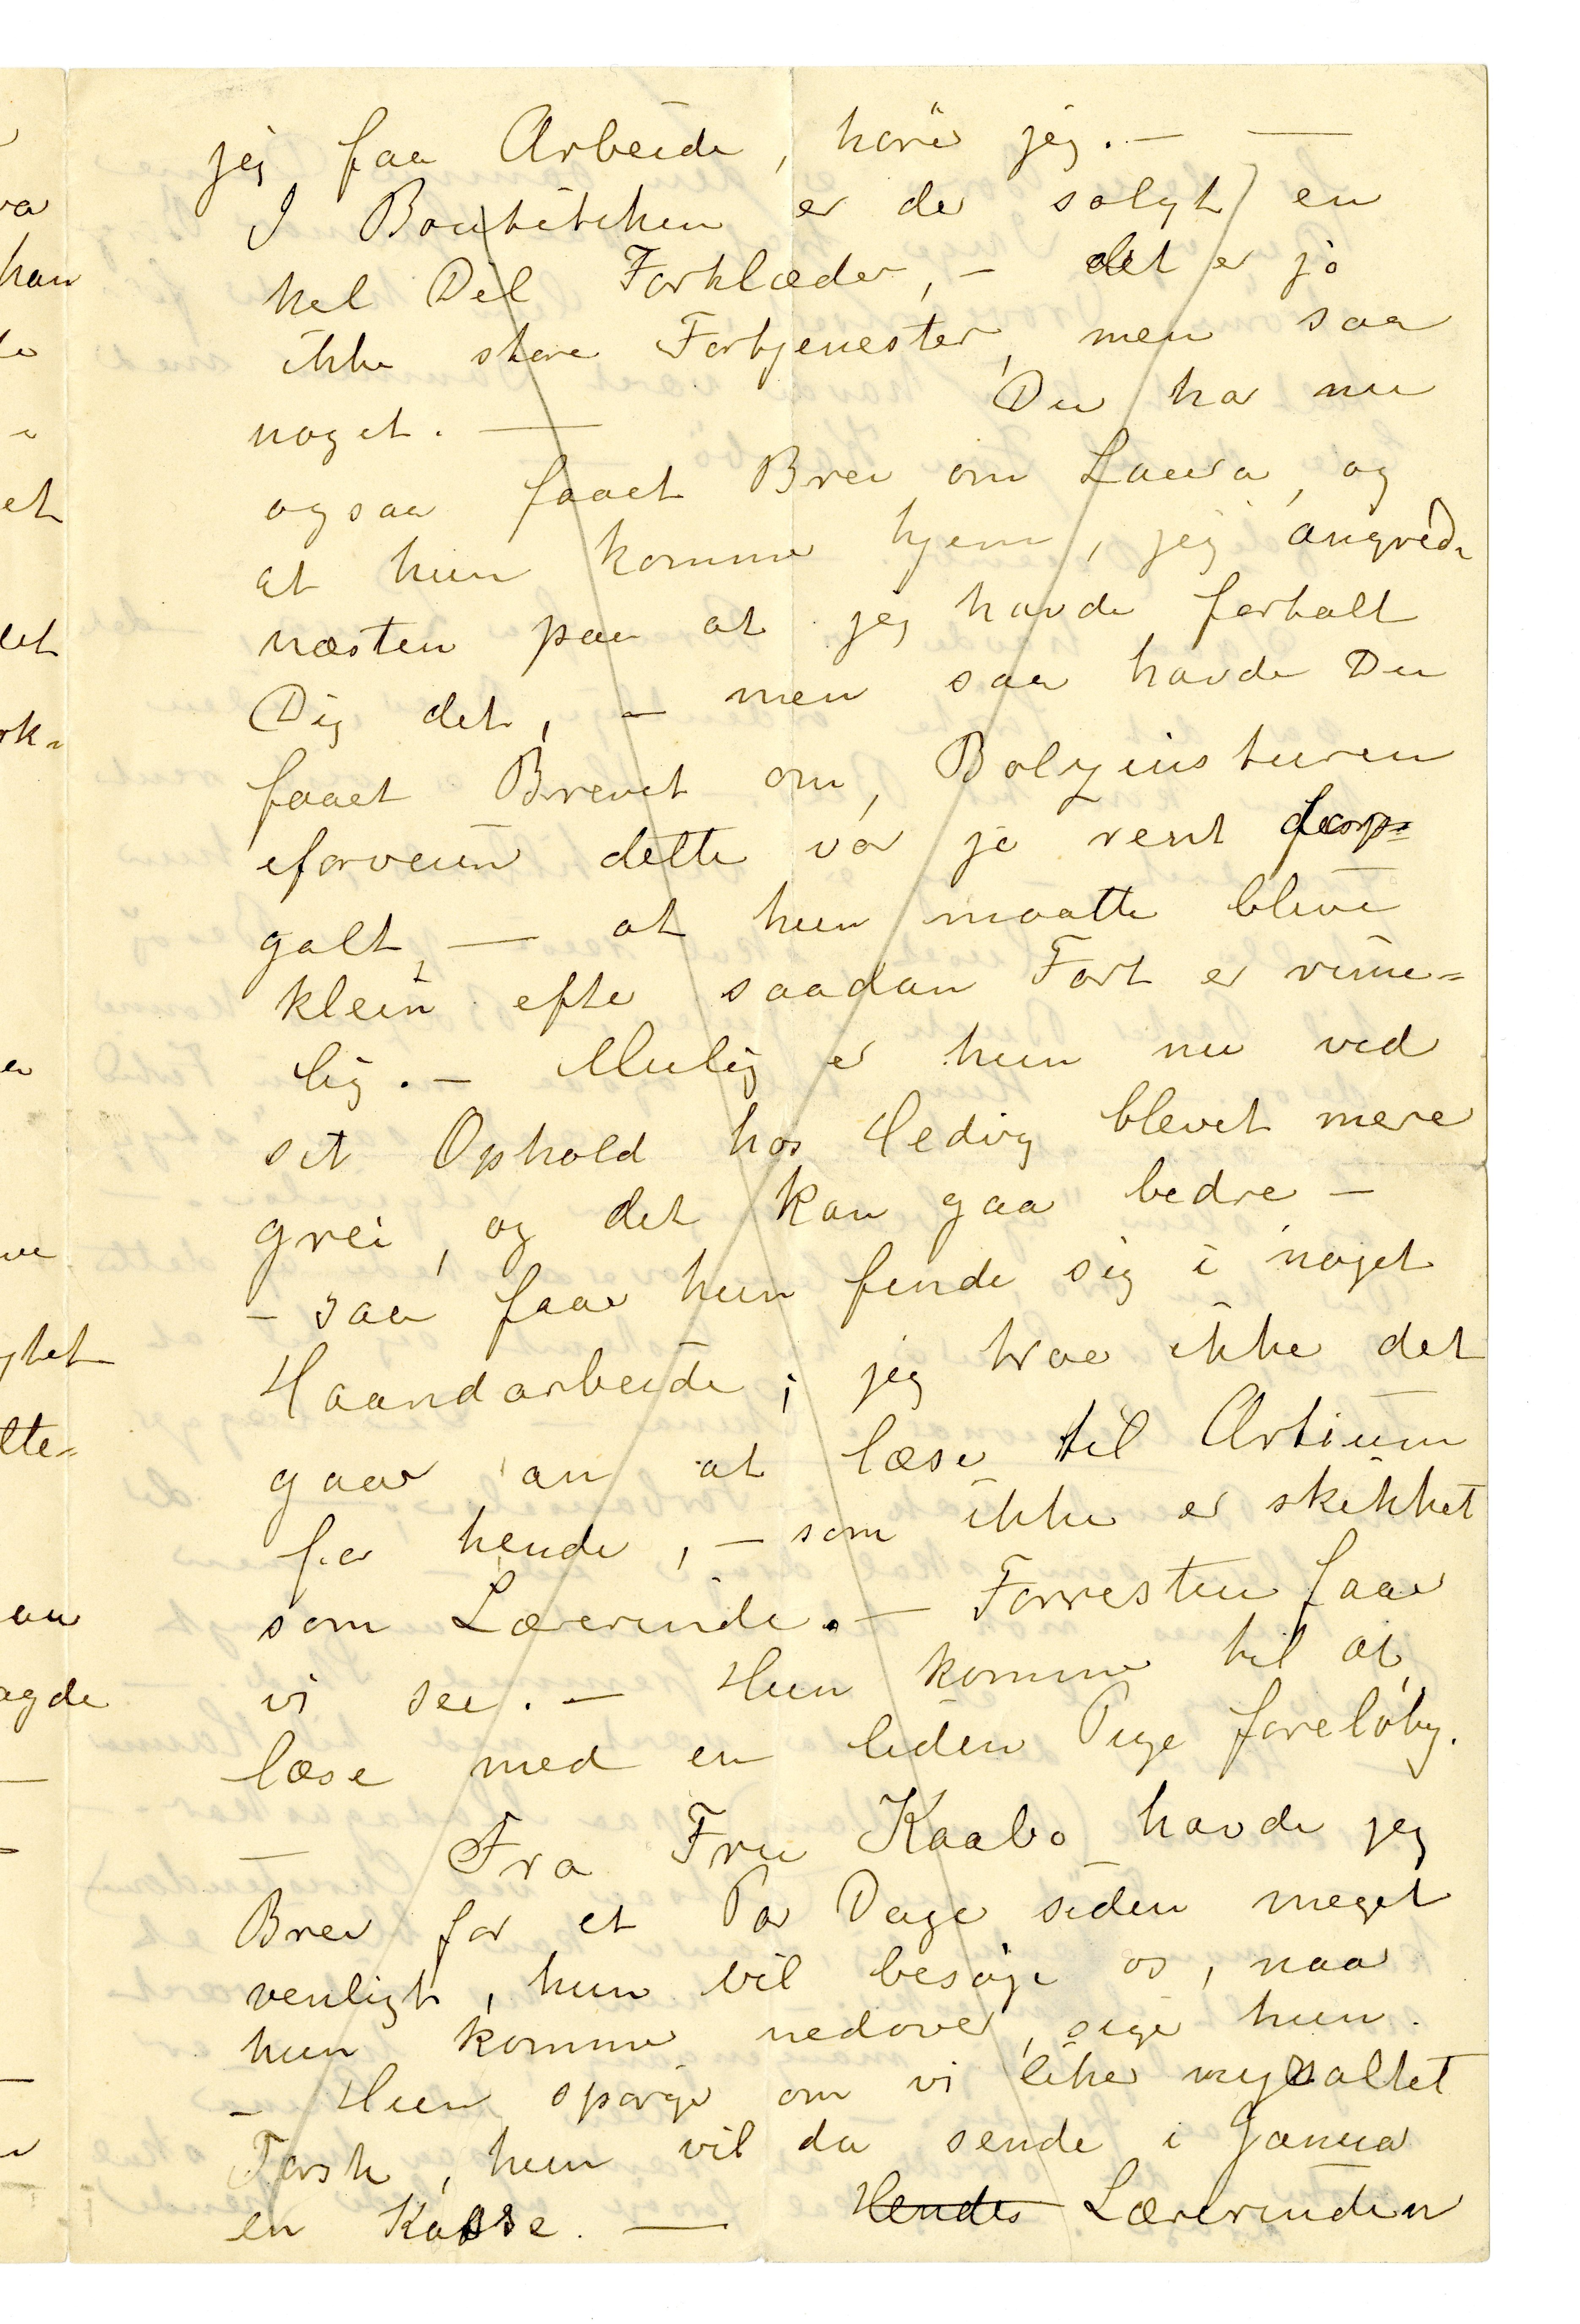 jeg faa Arbeide, hører jeg. — —
I Boutikken er der solgt en
hel Del Forklæder, – det er jo
ikke store Fortjenester, men saa
noget. — Du har nu
ogsaa faaet Brev om Laura, og
at hun kommer hjem, jeg angrede
næsten paa at jeg havde fortalt
Dig det, – men saa havde Du
faaet Brevet om,
iforveien dette var jo rent
galt, — at hun maatte blive
klein efter saadan Fart er rime=
lig. – Mulig er hun nu ved
sit Ophold hos Hedvig blevet mere
grei, og det kan gaa bedre –
– saa faar hun finde sig i noget
Haandarbeide; jeg tror ikke det
gaar an at læse til Artium
for hende, – som ikke er skikket
som Lærerinde. – Forresten faar
vi see. – Hun kommer til at
læse med en liden Pige foreløbig.
— Fra Fru Kaabø havde jeg
Brev for et Par Dage siden meget
venligt, hun vil besøge os, naar
hun kommer nedover, siger hun.
– Hun spørger om vi liker nysaltet
Torsk, hun vil da sende i Januar
en Kasse. — Hendes Lærerinden